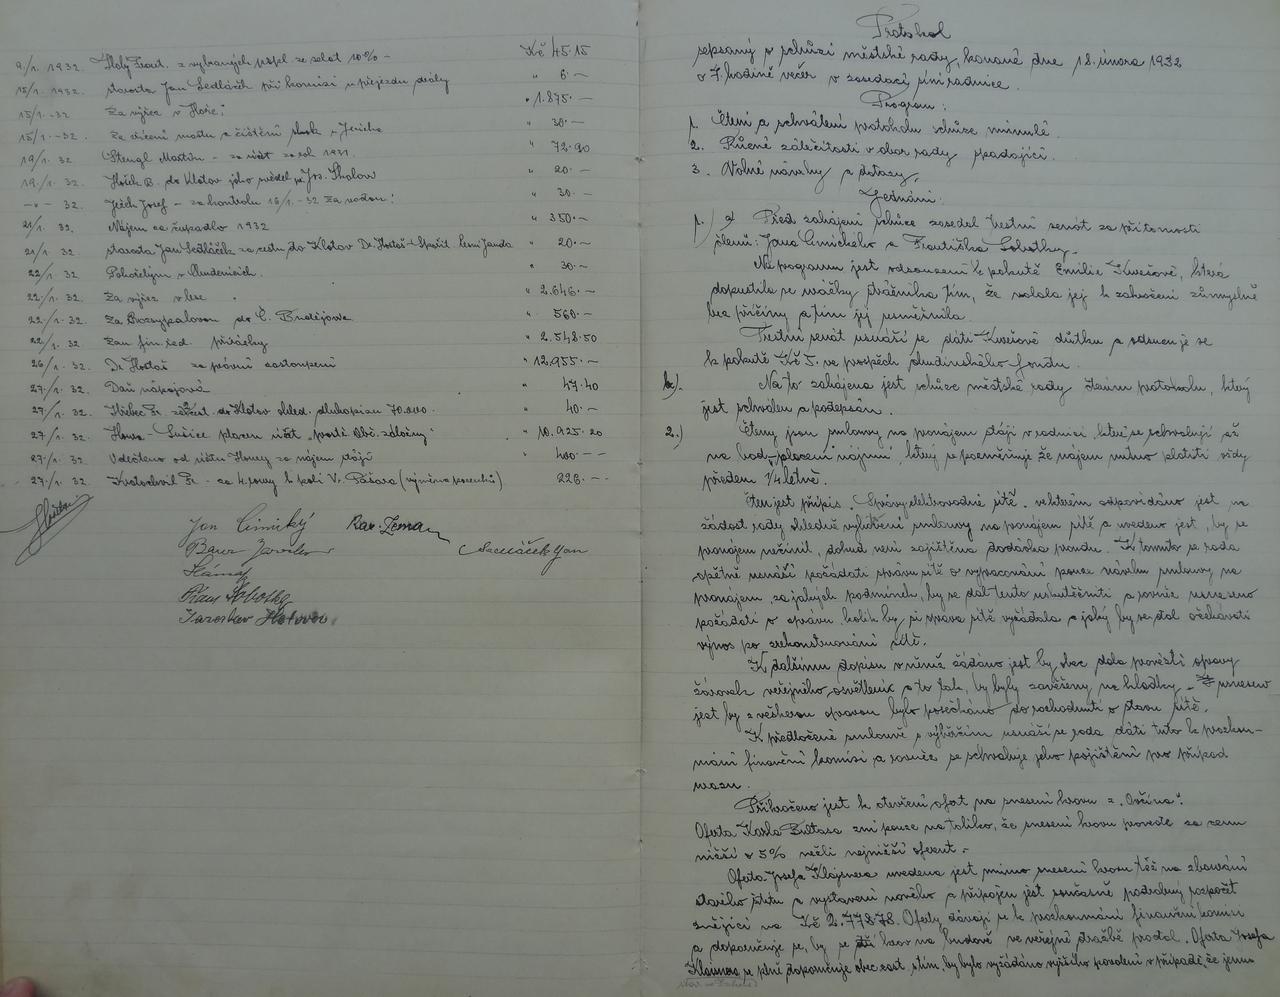 9/1. 1932. Holý Frant. z vybraných popl. ze solat 10% - Kč 45.15
15/1. 1932. starosta Jan Sedláček při komisi u přejezdu dráhy " 6.-
15/1.-32 Za výřez v Hoře: " 1.875.-
15/1.-32. Za zřízení mostu a čištění stok, Jericha " 30.-
19/1. 32 Stengl Martin - za účet za rok 1931. " 72.90
19/1. 32. B. do Klatov jeho svědel p. Jos. Skalov " 20.-
-"- 32. Jeřich Josef - za kontrolu 16/1.-32 za vodou: " 30.-
21/1 32. Nájem za čerpadlo 1932 " 350.-
21/1. 32 starosta Jan Sedláček za cestu do Klatov Dr. Hostaš " 20.-
22/1. 32 Pohořelým v " 30.-
22/1. 32. Za výřez v lese. " 2.646.-
22/1. 32. Za do Č. Budějovic " 560.-
22/1. 32. Zem. fin. řed. přirážky " 2.548.50
26/1. 32 Dr. Hostaš za právní zastoupení " 12.955.-
27/1. 32. Daň nápojová " 47.40
27/1. 32. Fr. do Klatov ohled. dluhopisu 70.000. " 40.-
27/1. 32 - Sušice placen účet " 10.925.20
27/1. 32 Vdečteno od účtu za nájem stájí " 400.-
27/1. 32. Fr. - za 4 k poli V. (výměna pozemků) " 226.-
Jan Cimický Rad. Zeman
Baur Jaroslav Sedláček Jan
Sobotka
Jaroslav
Protokol
sepsaný o schůzi městské rady, konané dne 18. února 1932
v 7. hodině večer v zasedací síni radnice.
Program:
1. Čtení a schválení protokolu schůze minulé.
2. Různé záležitosti v obor rady spadající.
3. Volné návrhy a dotazy.
Jednání:
1.) a) Před zahájení schůze zasedal trestní senát za přítomnosti
členů: Jana Cimického a Františka Sobotky.
Na program jest odsouzení k pokutě Emilie Kveršové, která
dopustila se urážky strážníka tím, že volala jej k zakročení zúmyslně
bez příčiny a tím jej zesměšnila.
Trestní senát usnáší se dáti Kverešové důtku a odsuzuje se
k pokutě Kč 5. ve prospěch chudinského fondu.
b.) Na to zahájena jest schůze městské rady čtením protokolu, který
jest schválen a podepsán.
2.) Čteny jsou smlouvy na pronájem stájí v radnici, které se schvalují až
na bod placení nájmu, který se pozměňuje že nájem nutno platiti vždy
předem 1/4 letně.
Čten jest přípis "Správy elektrovodné sítě" ve kterém odpovídáno jest na
žádost rady ohledně vyhotovení smlouvy na pronájem sítě a uvedeno jest, by se
pronájem nečinil, dokud není zajištěna dodávka proudu. K tomuto se rada
opětně usnáší požádati správu sítě o vypracování pouze návrhu smlouvy na
pronájem, za jakých podmínek, by se dal tento uskutečniti a rovněž usneseno
požádati o zprávu, kolik by si oprava sítě vyžádala a jaký by se dal očekávati
výnos po zrekonstruování sítě.
K dalšímu dopisu v němž žádáno jest by obec dala provésti opravy
žárovek veřejného osvětlení a to tak, by byly zavěšeny na kladky - usneseno
jest by s veškerou opravou bylo posečkáno do rozhodnutí o stavu sítě.
K předložené smlouvě s výběrčím usnáší se rada dáti tuto k prozkou-
mání finanční komisi a rovněž se schvaluje jeho pojištění pro případ
úrazu.
Přikročeno jest k otevření ofert na snesení krovu z "Ovčína".
Oferta Karla Bultasa zní pouze na tolik, že snesení krovu provede za cenu
nižší o 5% nežli nejnižší oferent.-
Oferta Josefa Klajsnera uvedena jest mimo snesení krovu též na zbourání
starého štítu a vystavení nového a připojen jest současně podrobný rozpočet
znějící na Kč 2.778.78. Oferty dávají se k prozkoumání finanční komisi
a doporučuje se, by se krov na budově ve veřejné dražbě prodal. Oferta Josefa
Klajsnera se plně doporučuje obec. zast. s tím, by bylo vyžádáno vyššího povolení v případě, že jemu